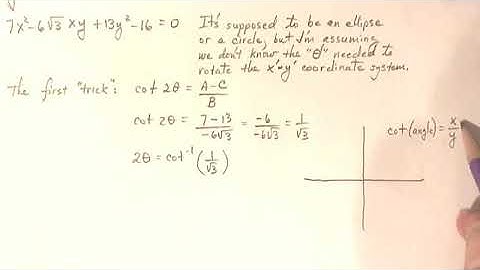 7x² - 6√3 xy + 13y² - 16 = 0
It's supposed to be an ellipse
or a circle, but I'm assuming
we don't know the "θ" needed to
rotate the x'-y' coordinate system.
The first "trick": cot 2θ = A-C/B
cot 2θ = 7-13/-6√3 = -6/-6√3 = 1/√3
cot(angle) = x/y
2θ = cot⁻¹(1/√3)